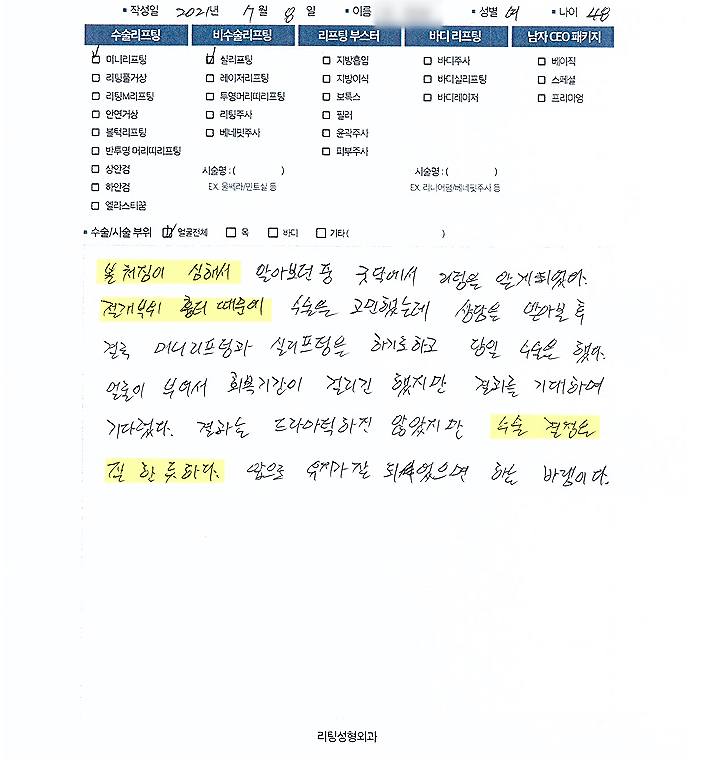 ▪ 작성일 2021년 7월 8일 ▪ 이름 ▪ 성별 여 ▪ 나이 48
수술리프팅 비수술리프팅 리프팅 부스터 바디 리프팅 남자 CEO 패키지
미니리프팅 실리프팅 지방흡입 바디주사 베이직
리팅풀거상 레이저리프팅 지방이식 바디실리프팅 스페셜
리팅M리프팅 투명머리띠리프팅 보톡스 바디레이저 프리미엄
안면거상 리팅주사 필러
볼턱리프팅 베네핏주사 윤곽주사
반투명 머리띠리프팅 피부주사
상안검 시술명 : ( ) 시술명 : ( )
하안검 EX. 울쎄라/민트실 등 EX. 리니어펌/베네핏주사 등
엘라스티꿈
▪ 수술/시술 부위 얼굴전체 목 바디 기타 ( )
볼 처짐이 심해서 알아보던 중 굿닥에서 리팅을 알게되었다.
절개부위 흉터 때문에 수술을 고민했는데 상담을 받아본 후
결국 미니리프팅과 실리프팅을 하기로하고 당일 수술을 했다.
얼굴이 부어서 회복기간이 걸리긴 했지만 결과를 기대하며
기다렸다. 결과는 드라마틱하진 않았지만 수술 결정은
잘 한 듯하다. 앞으로 유지가 잘 되었으면 하는 바램이다.
리팅성형외과